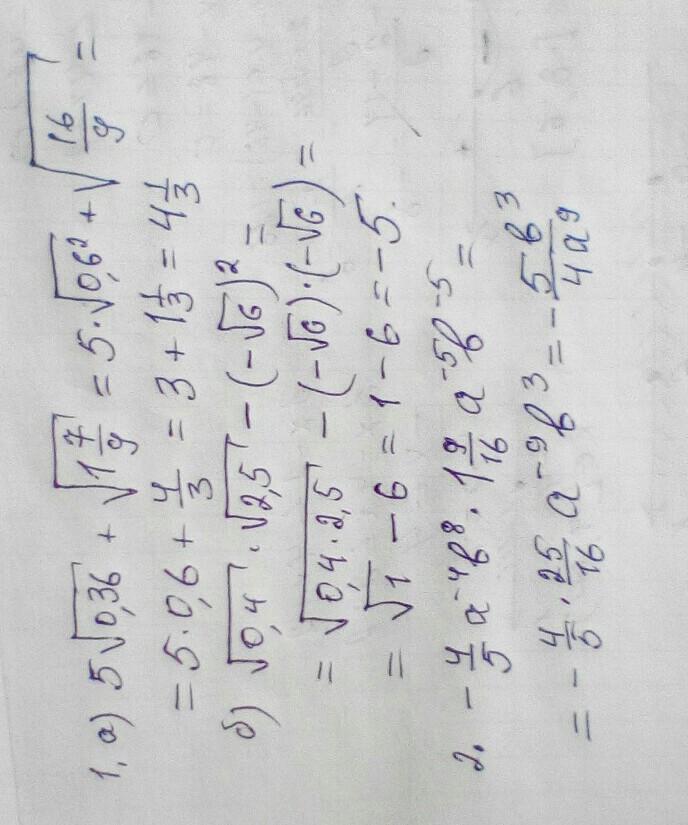 1. а) 5√0,36 + √1 7/9 = 5·√0,6² + √16/9 =
= 5·0,6 + 4/3 = 3 + 1 1/3 = 4 1/3
б) √0,4 · √2,5 − (−√6)² =
= √0,4·2,5 − (−√6)·(−√6) =
= √1 − 6 = 1 − 6 = −5.
2. − 4/5 a⁻⁴b⁸ · 1 9/16 a⁻⁵b⁻⁵ =
= − 4/5 · 25/16 a⁻⁹b³ = − 5b³/4a⁹